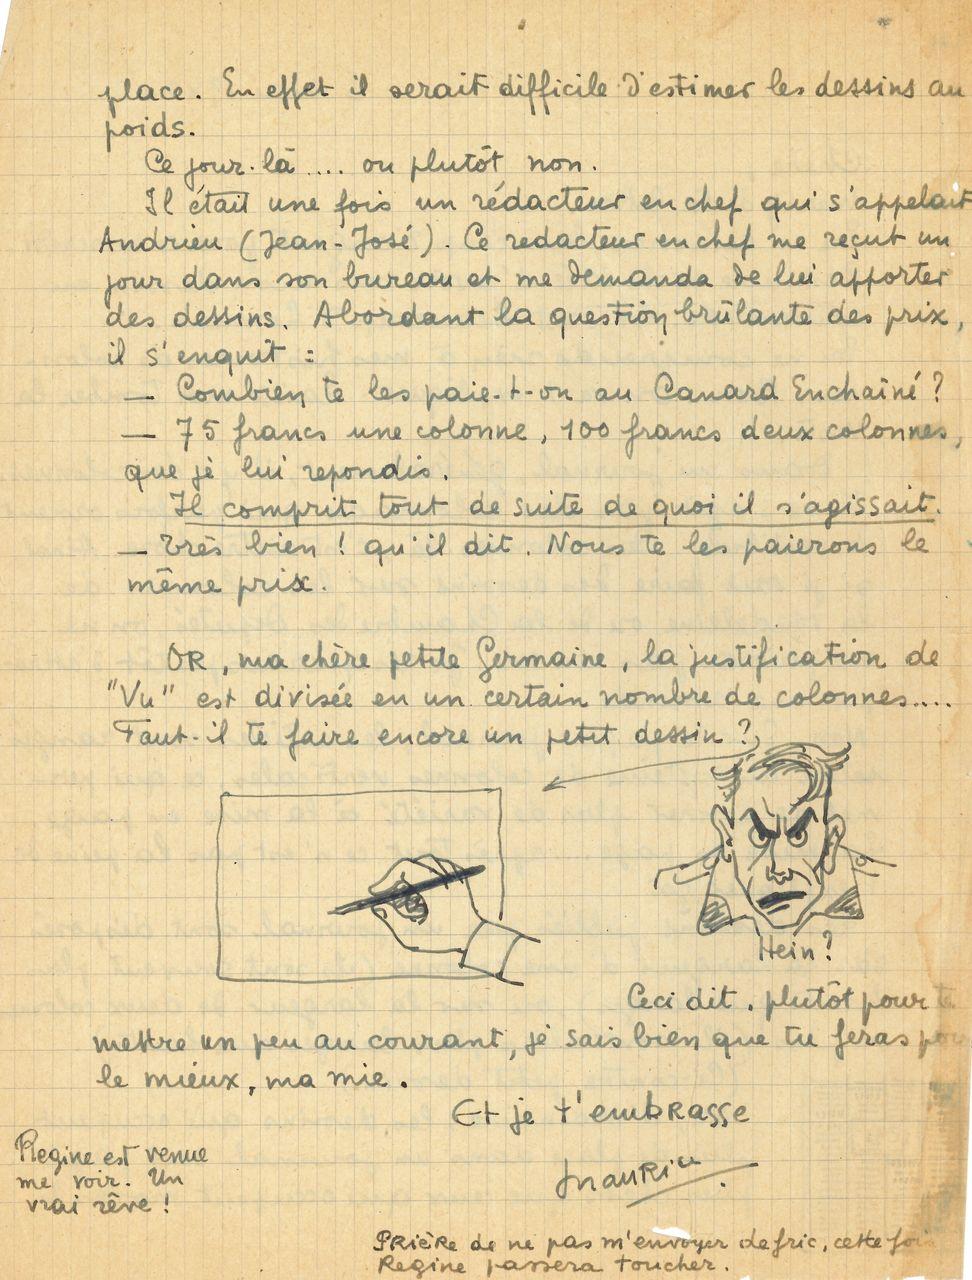 place. En effet il serait difficile d'estimer les dessins au
poids.
Ce jour-là .... ou plutôt non.
Il était une fois un rédacteur en chef qui s'appelait
Andrieu (Jean-José). Ce redacteur en chef me reçut un
jour dans son bureau et me demanda de lui apporter
des dessins. Abordant la question brûlante des prix,
il s'enquit :
— Combien te les paie-t-on au Canard Enchaîné ?
— 75 francs une colonne, 100 francs deux colonnes,
que je lui repondis.
Il comprit tout de suite de quoi il s'agissait.
— Très bien ! qu'il dit. Nous te les paierons le
même prix.
OR, ma chère petite Germaine, la justification de
"Vu" est divisée en un certain nombre de colonnes....
Faut-il te faire encore un petit dessin ?
Hein ?
Ceci dit, plutôt pour te
mettre un peu au courant, je sais bien que tu feras pour
le mieux, ma mie.
Et je t'embrasse
Maurice
Regine est venue
me voir. Un
vrai rêve !
PRIÈRE de ne pas m'envoyer de fric, cette fois
Regine passera toucher.